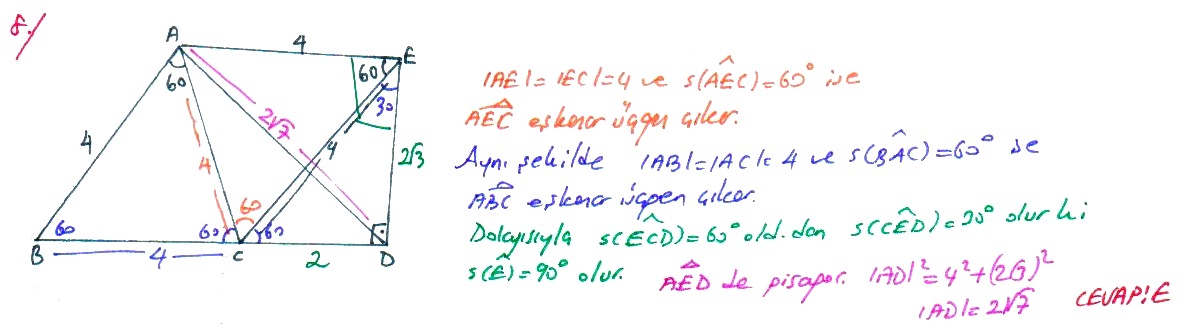 8./
A
4
E
60
60
30
4
4
2√7
4
2√3
60
60
60
60
B
4
C
2
D
|AE|= |EC|=4 ve s(AÊC)=60° ise
AEC eşkenar üçgen çıkar.
Aynı şekilde |AB|=|AC|= 4 ve s(BÂC)=60° ise
ABC eşkenar üçgen çıkar.
Dolayısıyla s(EĈD)=60° old.dan s(CÊD)=30° olur ki
s(Ê)=90° olur. AED de pisagor. |AD|²=4²+(2√3)²
|AD|=2√7 CEVAP:E